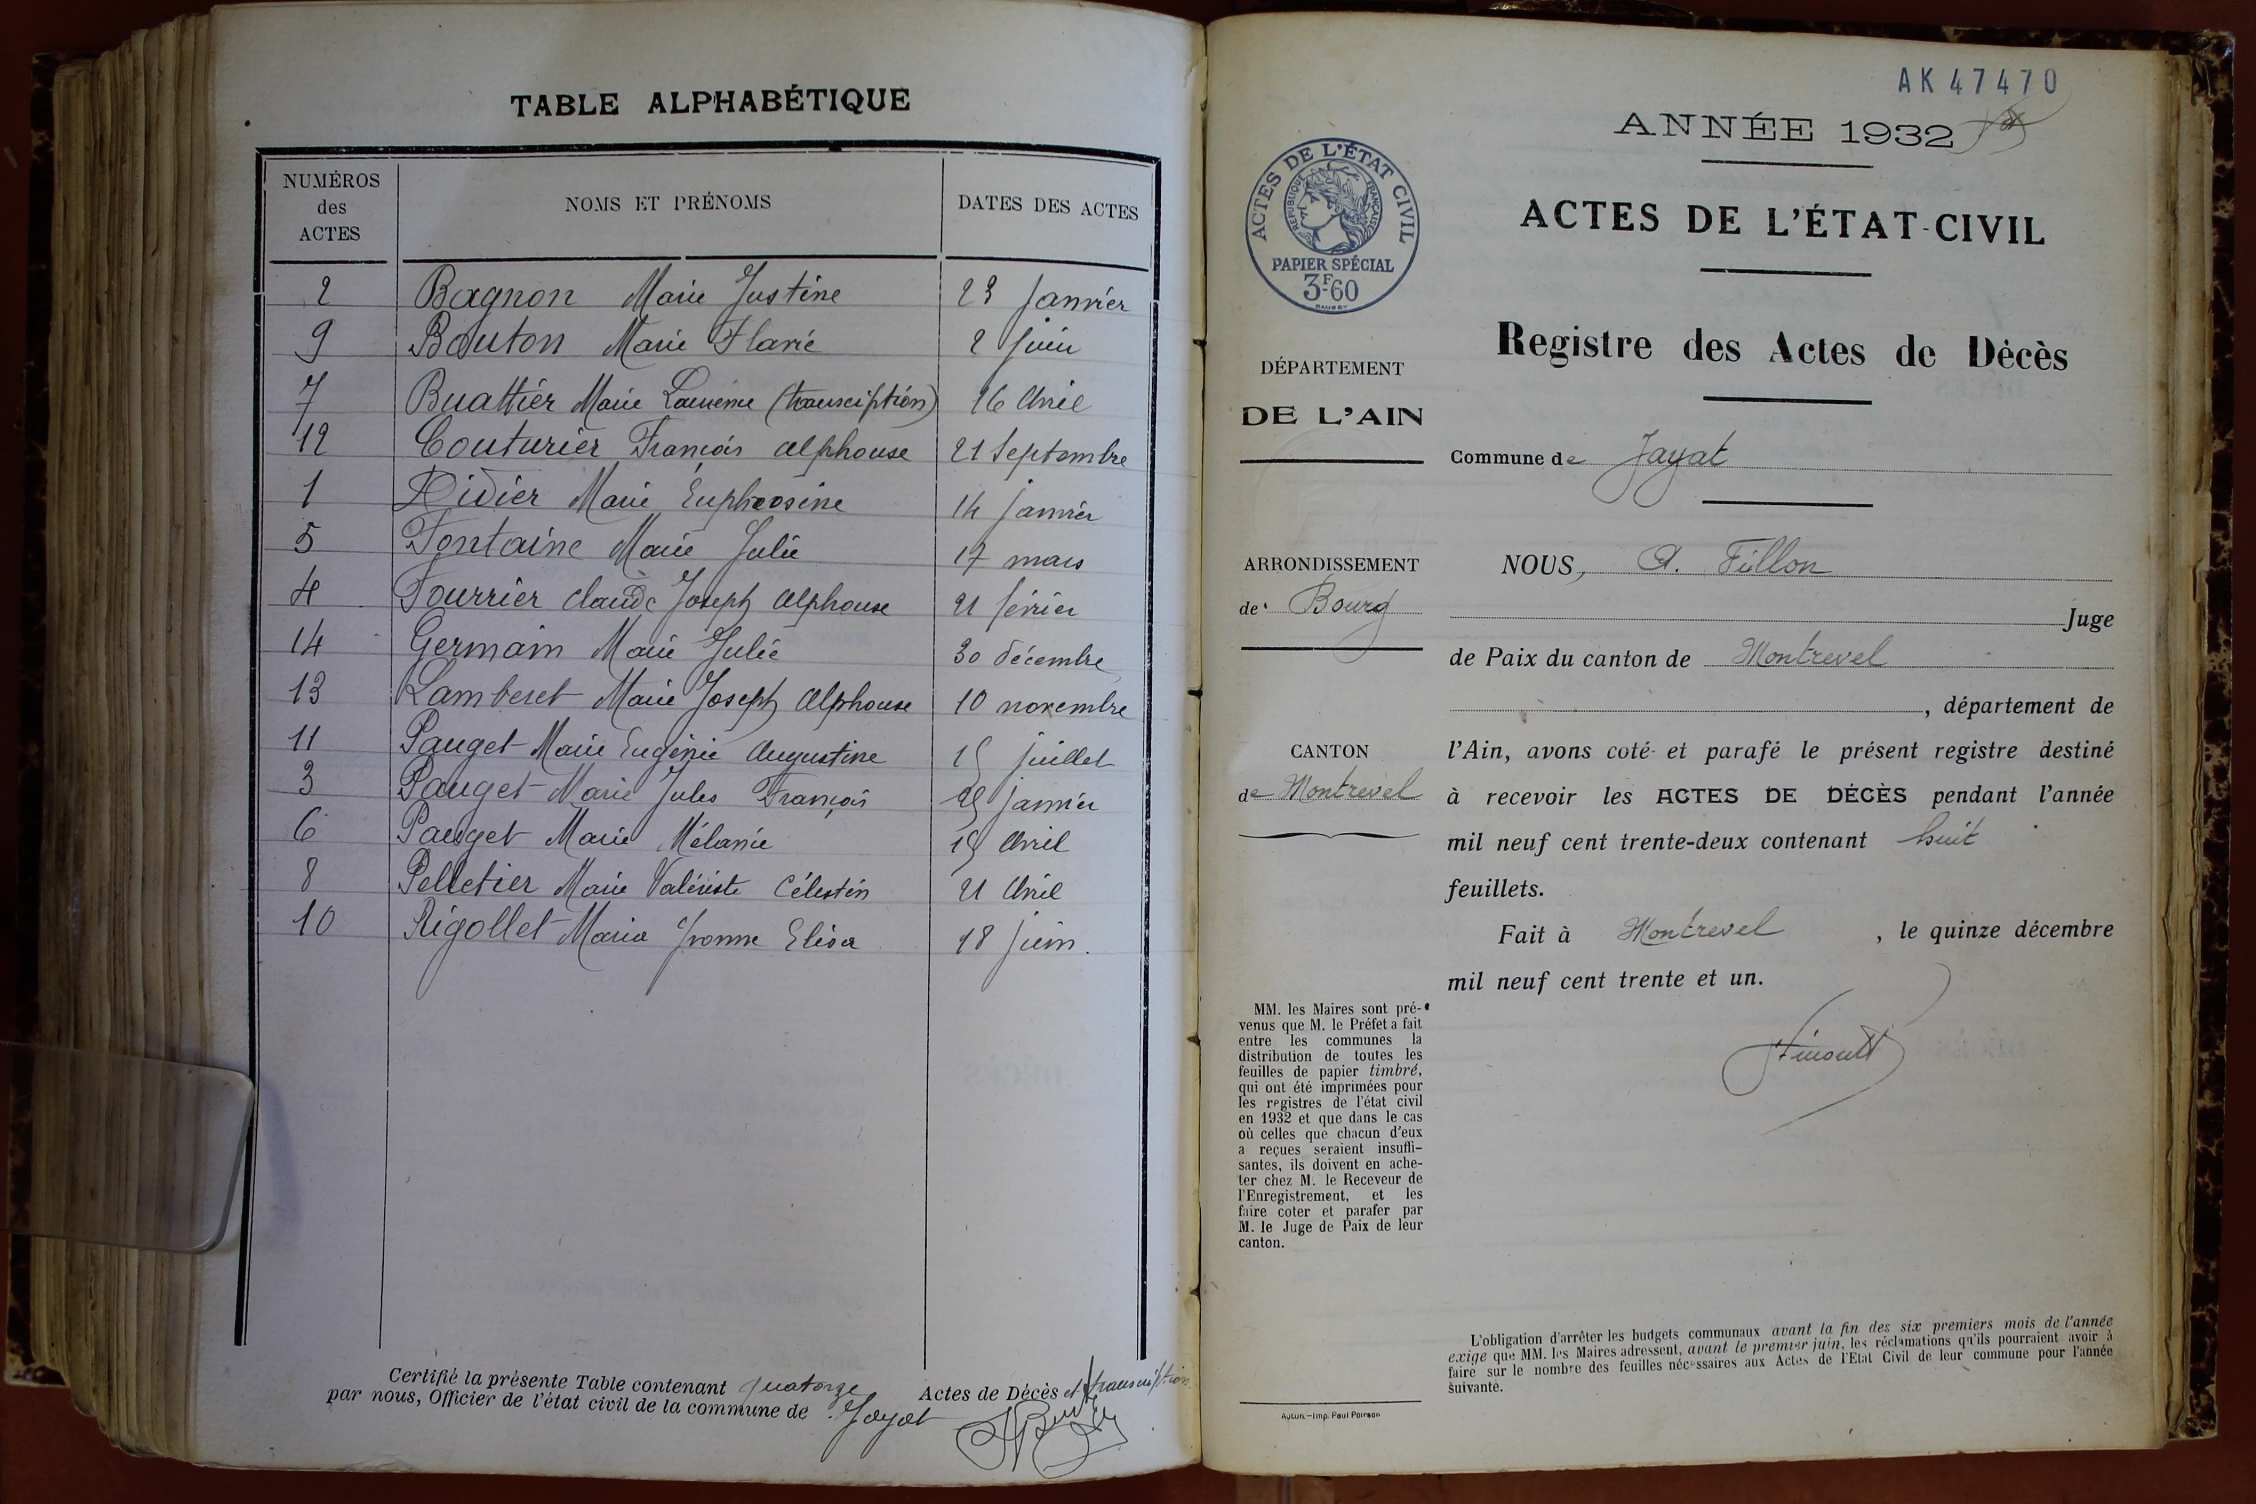 TABLE ALPHABÉTIQUE
NUMÉROS des ACTES NOMS ET PRÉNOMS DATES DES ACTES
2 Bagnon Marie Justine 23 Janvier
9 Bouton Marie Flavie 2 Juin
7 Buattier Marie (transcription) 16 Avril
12 Couturier François Alphonse 21 Septembre
1 Didier Marie Euphrosine 14 janvier
5 Fontaine Marie Julie 17 mars
4 Fourrier Claude Joseph Alphonse 21 février
14 Germain Marie Julie 30 décembre
13 Lamberet Marie Joseph Alphonse 10 novembre
11 Pauget Marie Eugénie Augustine 15 juillet
3 Pauget Marie Jules François 25 janvier
6 Pauget Marie Mélanie 15 Avril
8 Pelletier Marie Célestin 21 Avril
10 Rigollet Maria Yvonne Elisa 18 juin.
Certifié la présente Table contenant quatorze Actes de Décès et transcription
par nous, Officier de l'état civil de la commune de Jayat
AK 47470
ANNÉE 1932
ACTES DE L'ÉTAT CIVIL
RÉPUBLIQUE FRANÇAISE
PAPIER SPÉCIAL
3F60
ACTES DE L'ÉTAT-CIVIL
Registre des Actes de Décès
DÉPARTEMENT
DE L'AIN
Commune de Jayat
ARRONDISSEMENT
de Bourg
CANTON
de Montrevel
NOUS, A. Fillon
Juge
de Paix du canton de Montrevel
, département de
l'Ain, avons coté et parafé le présent registre destiné
à recevoir les ACTES DE DÉCÈS pendant l'année
mil neuf cent trente-deux contenant huit
feuillets.
Fait à Montrevel , le quinze décembre
mil neuf cent trente et un.
MM. les Maires sont pré-
venus que M. le Préfet a fait
entre les communes la
distribution de toutes les
feuilles de papier timbré,
qui ont été imprimées pour
les registres de l'état civil
en 1932 et que dans le cas
où celles que chacun d'eux
a reçues seraient insuffi-
santes, ils doivent en ache-
ter chez M. le Receveur de
l'Enregistrement, et les
faire coter et parafer par
M. le Juge de Paix de leur
canton.
L'obligation d'arrêter les budgets communaux avant la fin des six premiers mois de l'année
exige que MM. les Maires adressent, avant le premier juin, les réclamations qu'ils pourraient avoir à
faire sur le nombre des feuilles nécessaires aux Actes de l'Etat Civil de leur commune pour l'année
suivante.
Autun.—Imp. Paul Poirson